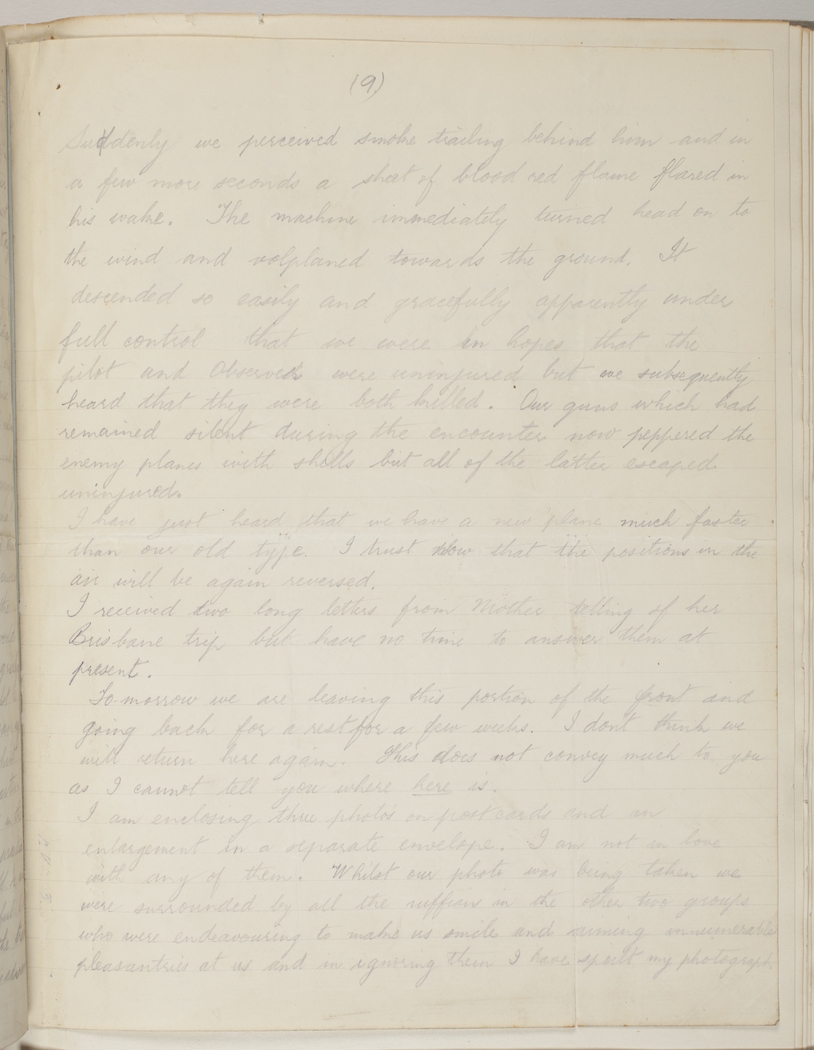 (9)
Suddenly we perceived smoke trailing behind him and in
a few more seconds a sheet of blood red flame flared in
his wake. The machine immediately turned head on to
the wind and volplaned towards the ground. It
descended so easily and gracefully apparently under
full control that we were in hopes that the
pilot and Observer were uninjured but we subsequently
heard that they were both killed. Our guns which had
remained silent during the encounter now peppered the
enemy planes with shells but all of the latter escaped
uninjured.
I have just heard that we have a new plane much faster
than our old type. I trust now that the positions in the
air will be again reversed.
I received two long letters from Mother telling of her
Brisbane trip but have no time to answer them at
present.
To-morrow we are leaving this portion of the front and
going back for a rest for a few weeks. I dont think we
will return here again. This does not convey much to you
as I cannot tell you where here is.
I am enclosing three photos on postcards and an
enlargement in a separate envelope. I am not in love
with any of them. Whilst our photo was being taken we
were surrounded by all the ruffians in the other two groups
who were endeavouring to make us smile and aiming innumerable
pleasantries at us and in ignoring them I have spoilt my photograph